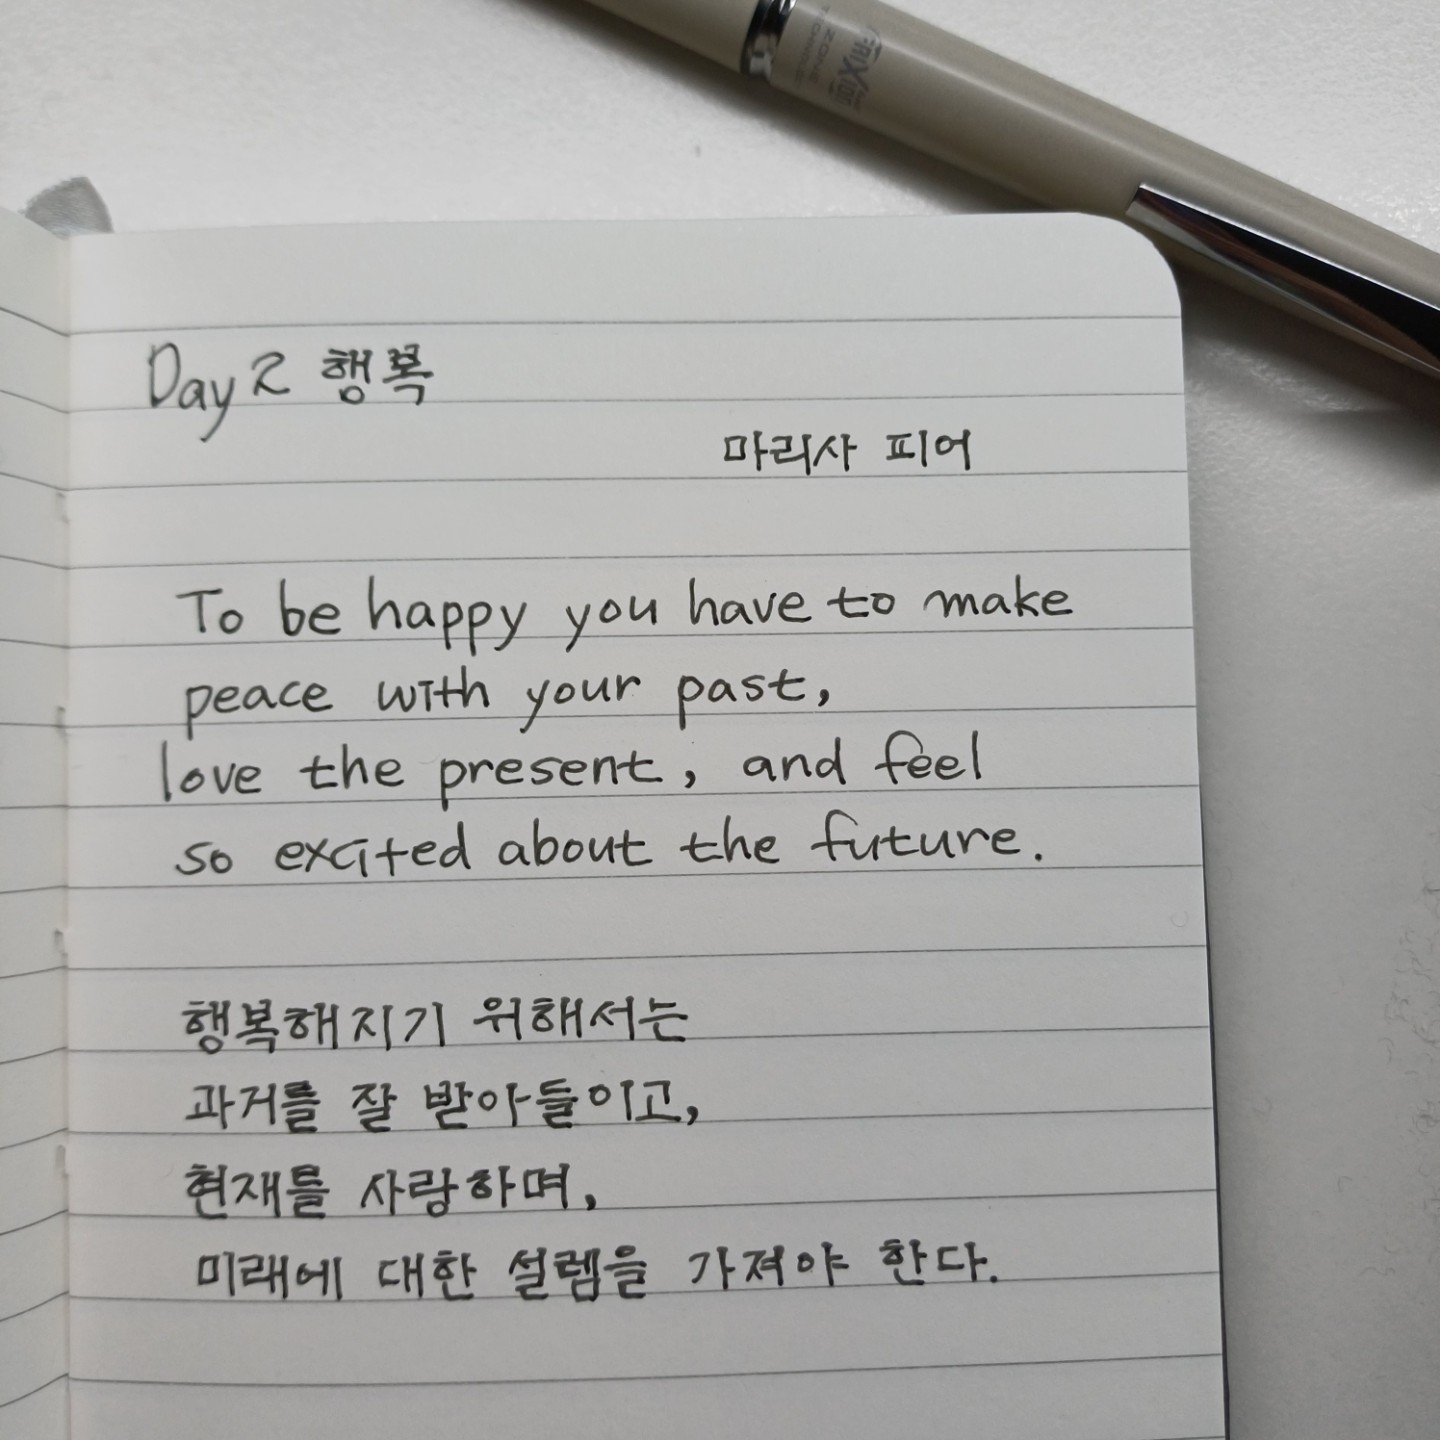 Day 2 행복
마리사 피어
To be happy you have to make
peace with your past,
love the present, and feel
so excited about the future.
행복해지기 위해서는
과거를 잘 받아들이고,
현재를 사랑하며,
미래에 대한 설렘을 가져야 한다.
ZONE